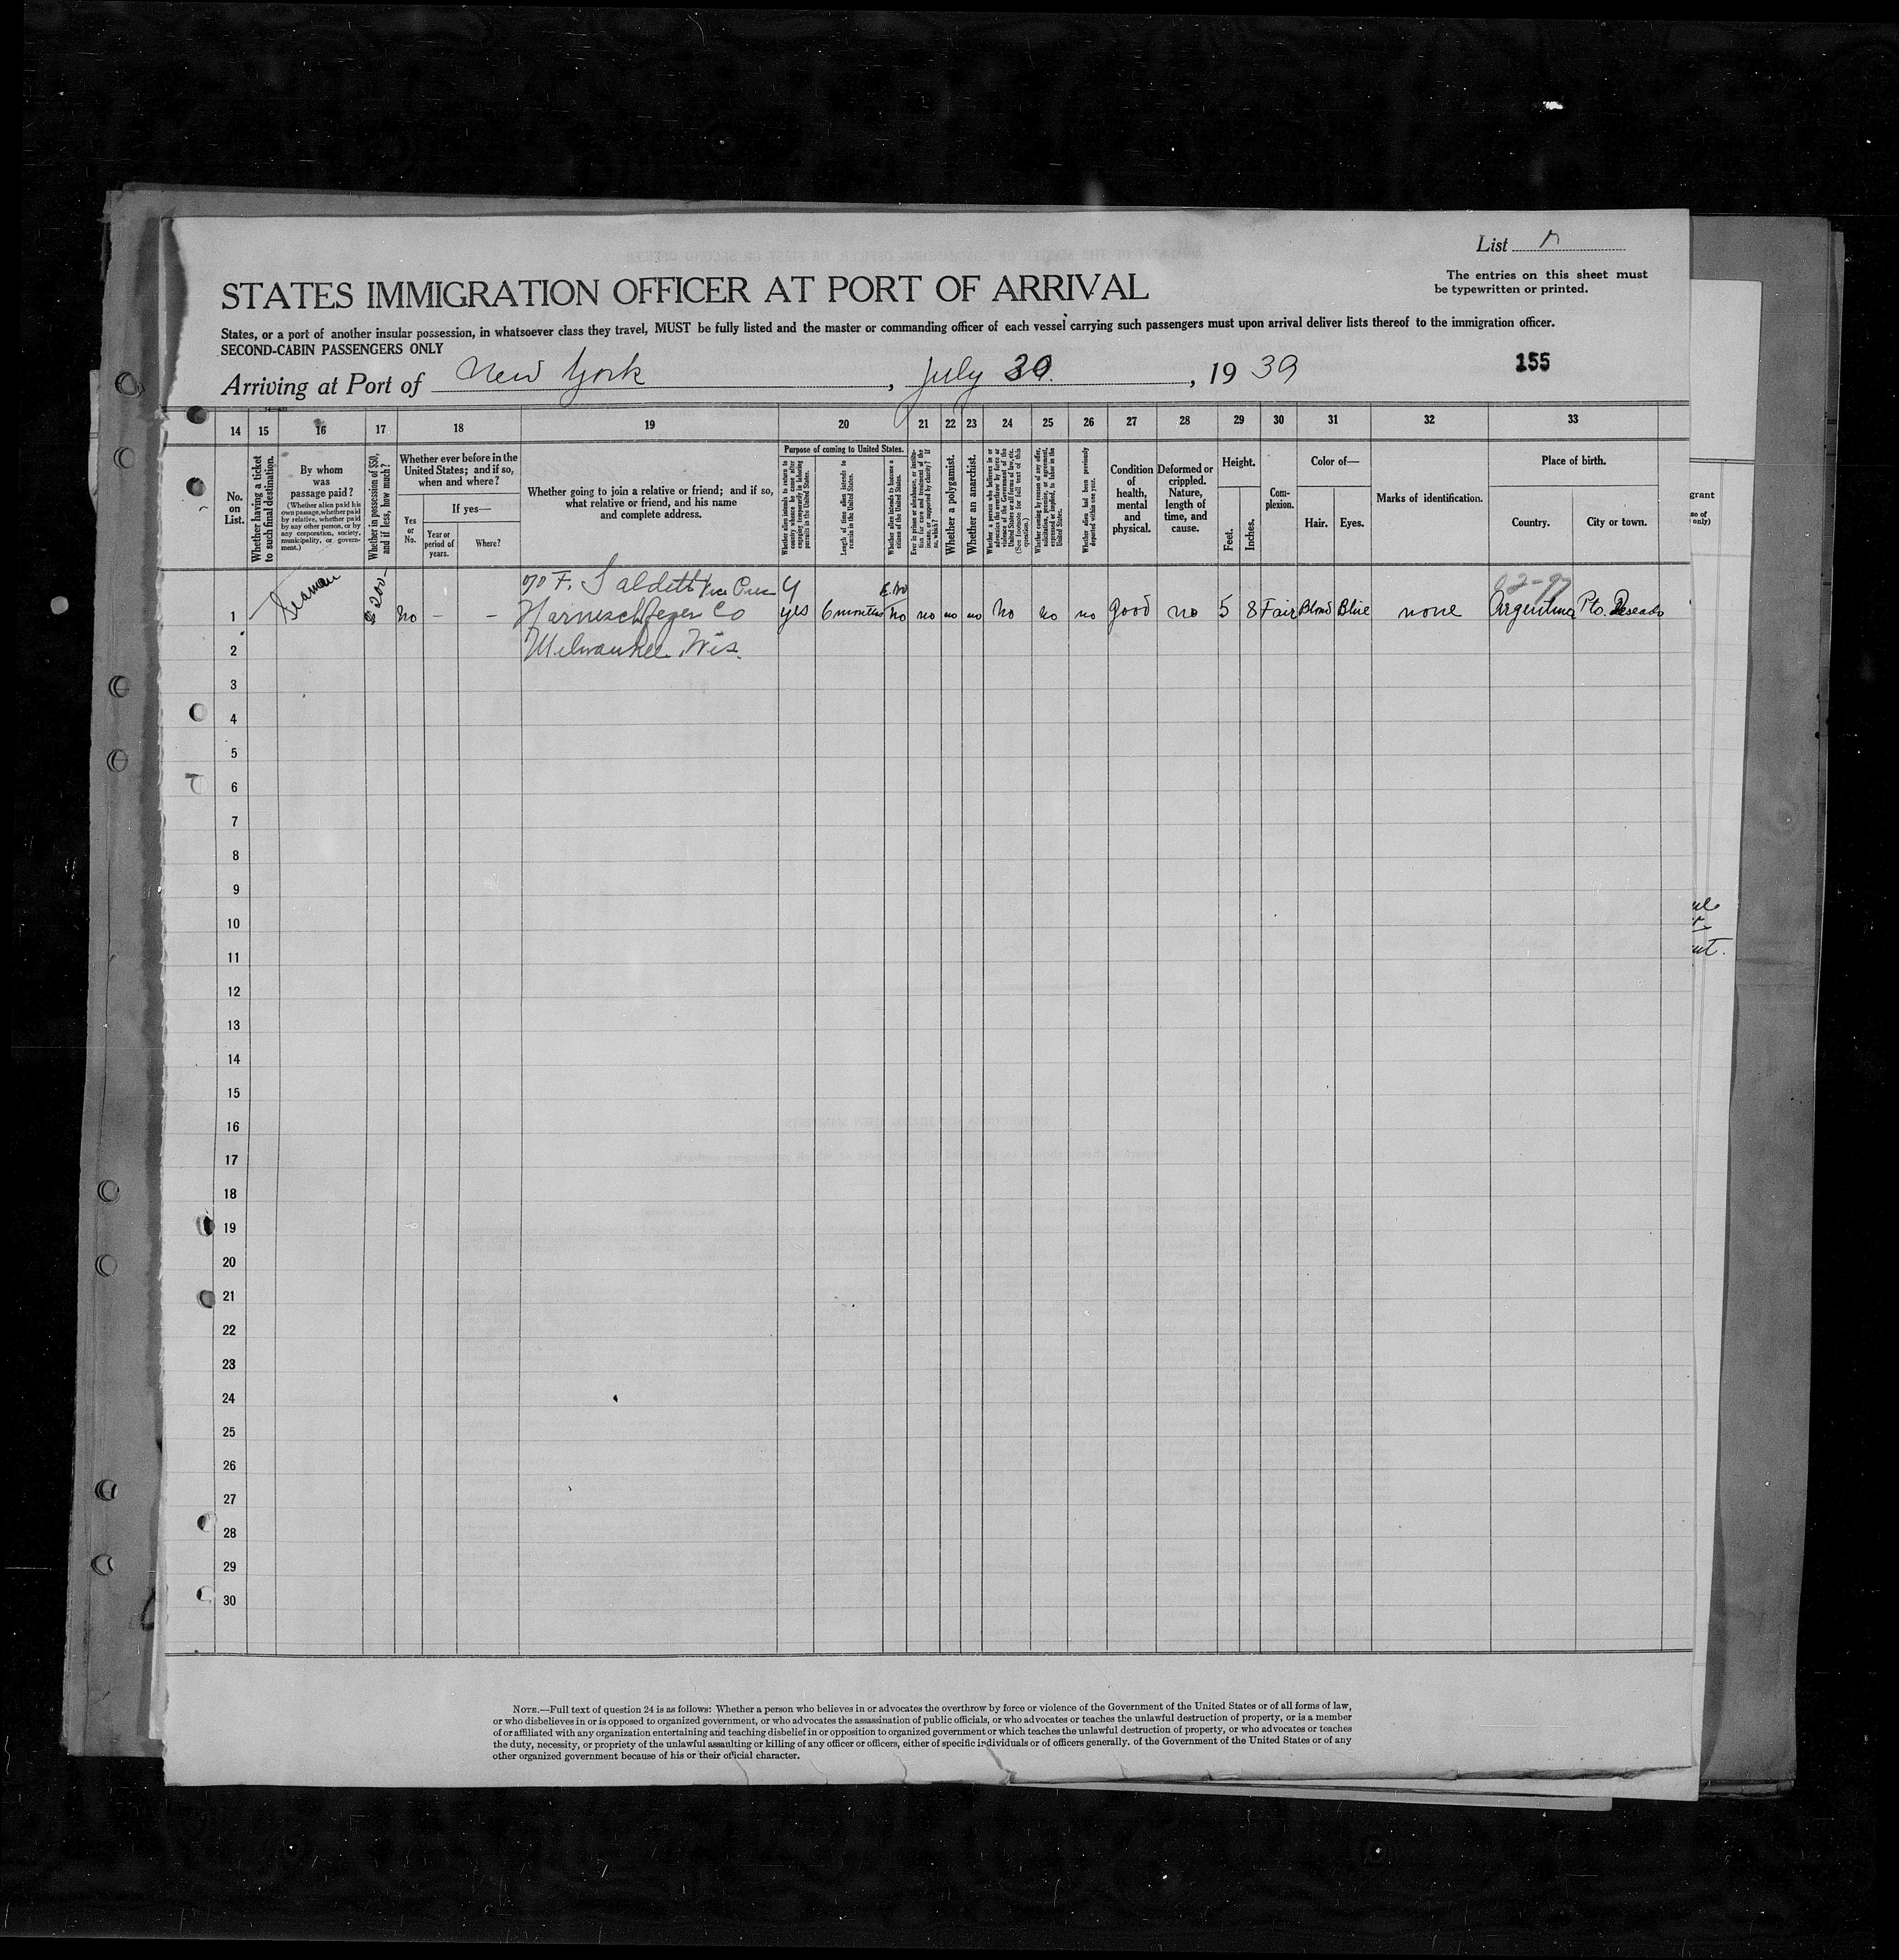 List
The entries on this sheet must
be typewritten or printed.
STATES IMMIGRATION OFFICER AT PORT OF ARRIVAL
States, or a port of another insular possession, in whatsoever class they travel, MUST be fully listed and the master or commanding officer of each vessel carrying such passengers must upon arrival deliver lists thereof to the immigration officer.
SECOND-CABIN PASSENGERS ONLY
155
Arriving at Port of New York, July 30, 1939
14 15 16 17 18 19 20 21 22 23 24 25 26 27 28 29 30 31 32 33
No. on List.
Whether having a ticket to such final destination.
By whom was passage paid?
(Whether alien paid his own passage, whether paid by relative, whether paid by any other person, or by any corporation, society, municipality, or government.)
Whether in possession of $50, and if less, how much?
Whether ever before in the United States; and if so, when and where?
Yes or No.
If yes—
Year or period of years.
Where?
Whether going to join a relative or friend; and if so, what relative or friend, and his name and complete address.
Purpose of coming to United States.
Whether alien intends to return to country whence he came after engaging temporarily in laboring pursuits in the United States.
Length of time alien intends to remain in the United States.
Whether alien intends to become a citizen of the United States.
Ever in prison or almshouse, or institution for care and treatment of the insane, or supported by charity? If so, which?
Whether a polygamist.
Whether an anarchist.
Whether a person who believes in or advocates the overthrow by force or violence of the Government of the United States or all forms of law, etc. (See footnote for full text of this question.)
Whether coming by reason of any offer, solicitation, promise, or agreement, expressed or implied, to labor in the United States.
Whether alien had been previously deported within one year.
Condition of health, mental and physical.
Deformed or crippled. Nature, length of time, and cause.
Height.
Feet.
Inches.
Complexion.
Color of—
Hair.
Eyes.
Marks of identification.
Place of birth.
Country.
City or town.
grant
only)
F. Vice Pres
1 Seaman $200- No – – Harnischfeger Co yes 6 months no no no no no no no good no 5 8 Fair Blond Blue none Argentina Pto. Deseado
2 Milwaukee, Wis.
3
4
5
6
7
8
9
10
11
12
13
14
15
16
17
18
19
20
21
22
23
24
25
26
27
28
29
30
NOTE.—Full text of question 24 is as follows: Whether a person who believes in or advocates the overthrow by force or violence of the Government of the United States or of all forms of law,
or who disbelieves in or is opposed to organized government, or who advocates the assassination of public officials, or who advocates or teaches the unlawful destruction of property, or is a member
of or affiliated with any organization entertaining and teaching disbelief in or opposition to organized government or which teaches the unlawful destruction of property, or who advocates or teaches
the duty, necessity, or propriety of the unlawful assaulting or killing of any officer or officers, either of specific individuals or of officers generally. of the Government of the United States or of any
other organized government because of his or their official character.